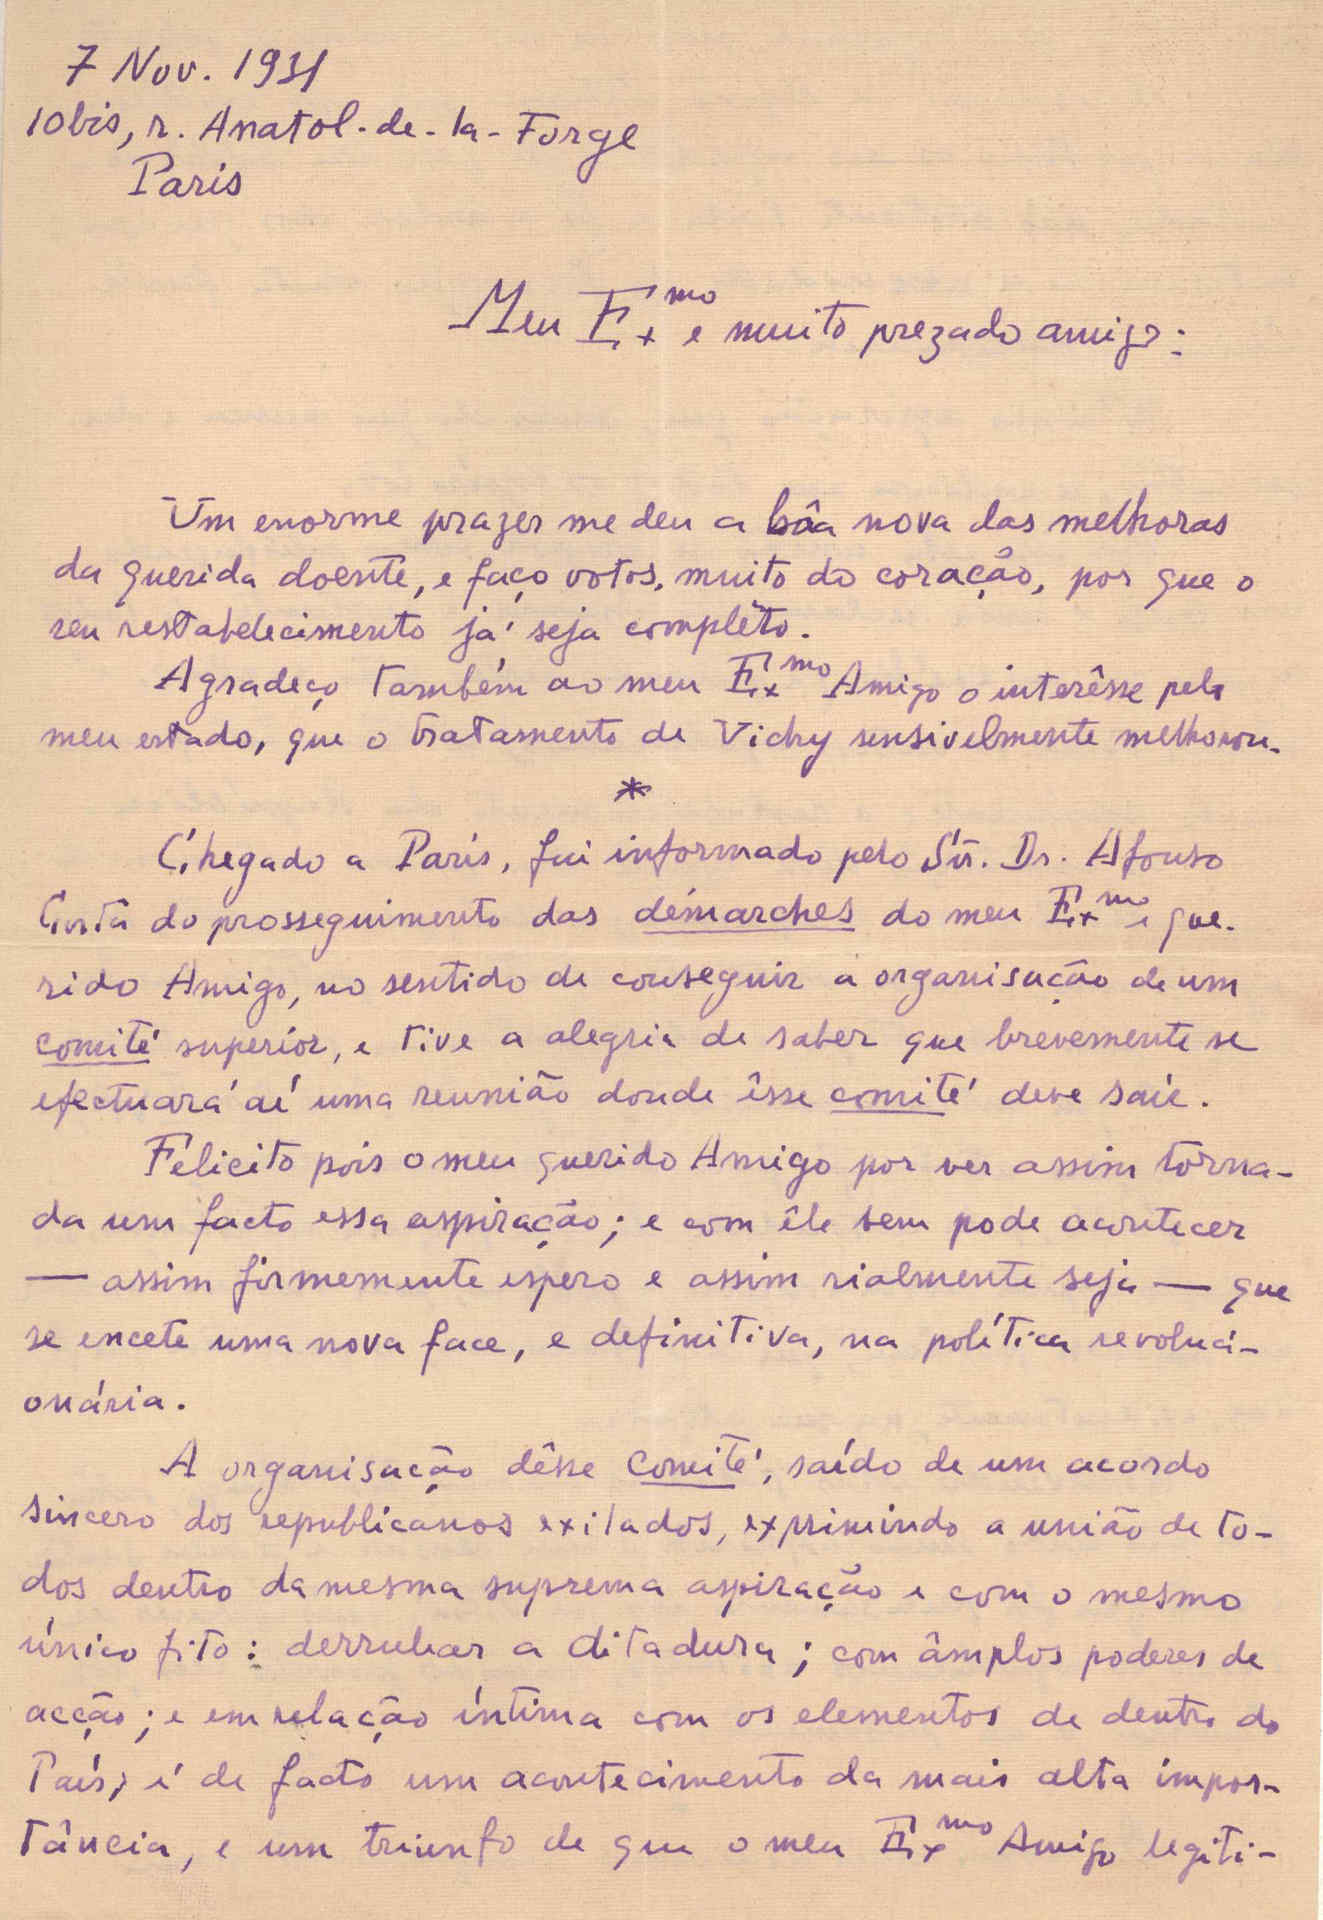 7 Nov. 1931
10bis, r. Anatol-de-la-Forge
Paris
Meu Ex.mo e muito prezado amigo:
Um enorme prazer me deu a bôa nova das melhoras
da querida doente, e faço votos, muito do coração, por que o
seu restabelecimento já seja complèto.
Agradeço também ao meu Ex.mo Amigo o interêsse pelo
meu estado, que o tratamento de Vichy sensivelmente melhorou.
*
Chegado a Paris, fui informado pelo Sñr. Dr. Afonso
Costa do prosseguimento das démarches do meu Ex.mo e que-
rido Amigo, no sentido de conseguir a organisação de um
comité superior, e tive a alegria de saber que brevemente se
efectuará aí uma reunião donde êsse comité deve saír.
Felicito pois o meu querido Amigo por ver assim torna-
da um facto essa aspiração; e com êle bem pode acontecer
— assim firmemente espero e assim rialmente seja — que
se encete uma nova face, e definitiva, na política revoluci-
onária.
A organisação dêsse Comité, saído de um acordo
sincero dos republicanos exilados, exprimindo a união de to-
dos dentro da mesma suprema aspiração e com o mesmo
único fito: derrubar a ditadura; com âmplos poderes de
acção; e em relação íntima com os elementos de dentro do
País; é de facto um acontecimento da mais alta impor-
tância, e um triunfo de que o meu Ex.mo Amigo legiti-